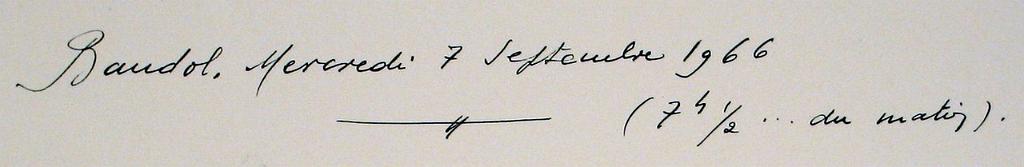 Bandol. Mercredi 7 Septembre 1966
(7 h 1/2 ... du matin).